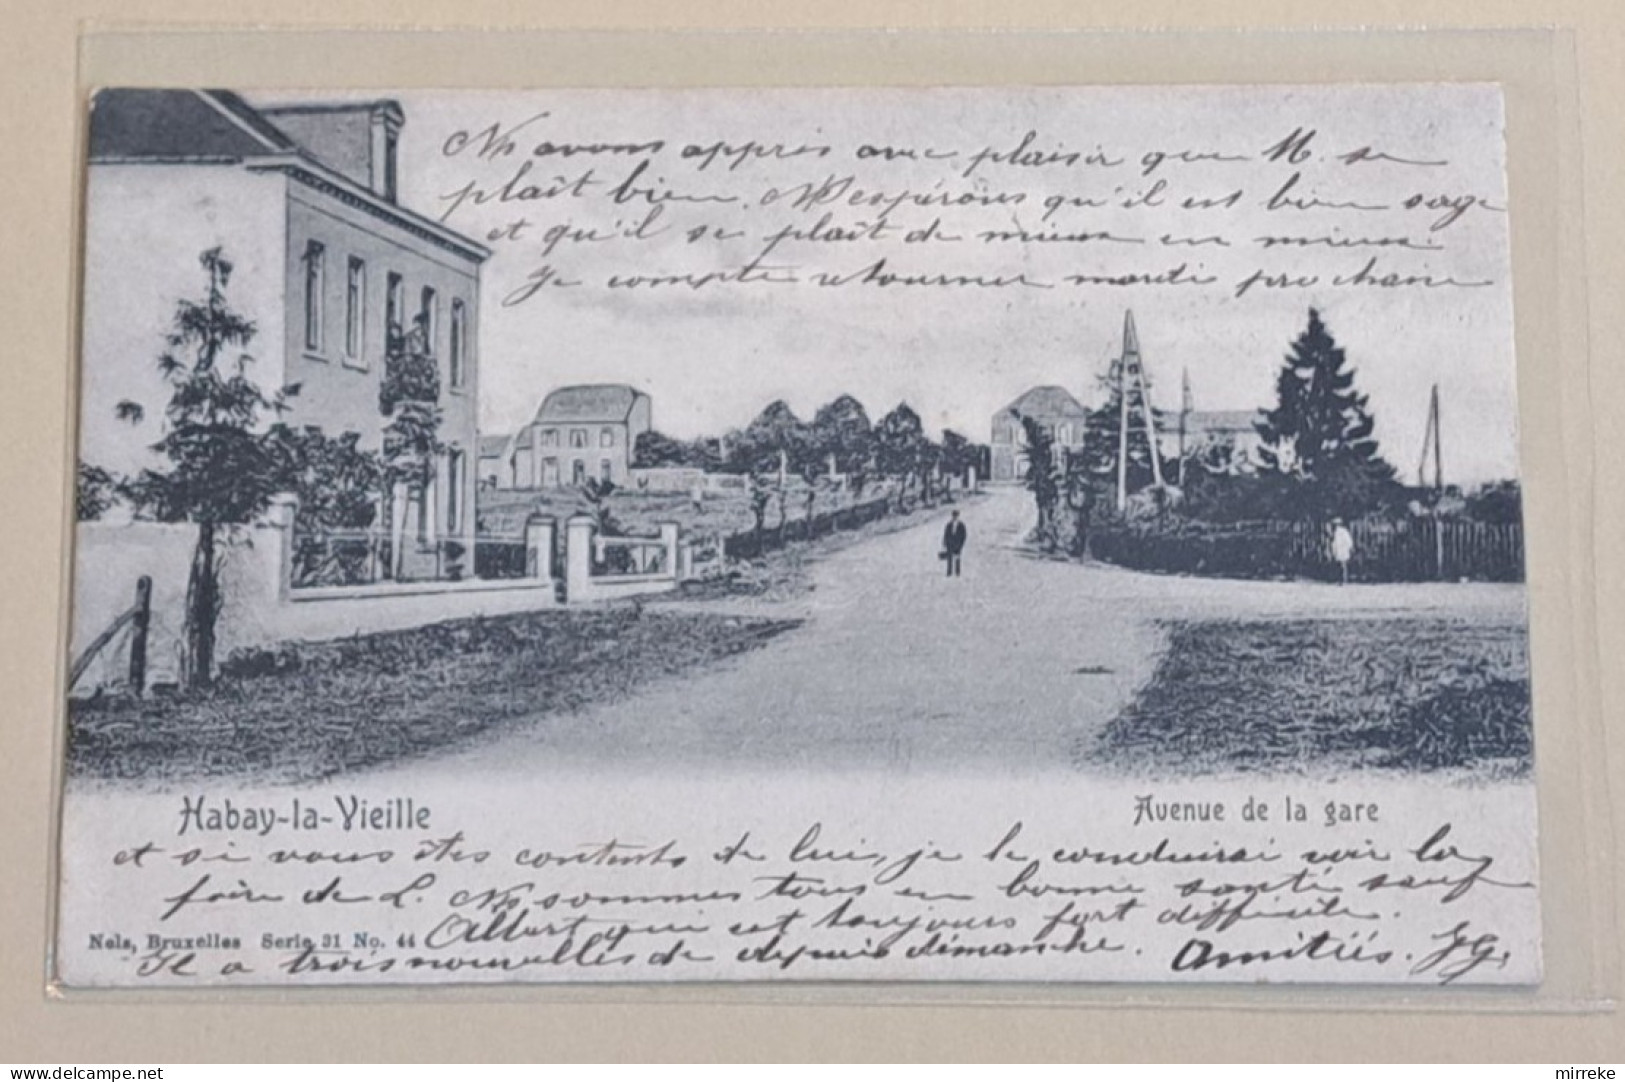 Ns avons appris avec plaisir que M. se
plaît bien. Ns espérons qu'il est bien sage
et qu'il se plaît de mieux en mieux.
Je compte retourner mardi prochain
Habay-la-Vieille
Avenue de la gare
et si vous êtes contents de lui, je le conduirai voir la
foire de L. Ns sommes tous en bonne santé sauf
Nels, Bruxelles Serie 31 No. 44
Albert qui est toujours fort difficile.
Il a trois de depuis dimanche. Amitiés. JG.
delcampe.net
mirreke